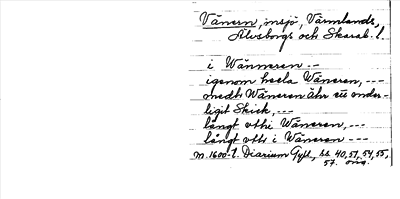 Vänern, insjö, Värmlands,
Älvsborgs och Skarab. l.
i Wänneren --
igenom heela Wäneren, ---
medh Wäneren ähr ett onder-
ligit Skick, ---
långt vthi Wäneren, ---
långt vtt i Wäneren ---
m. 1600-t. Diarium Gyll., ss. 40, 51, 54, 55,
57. orig.